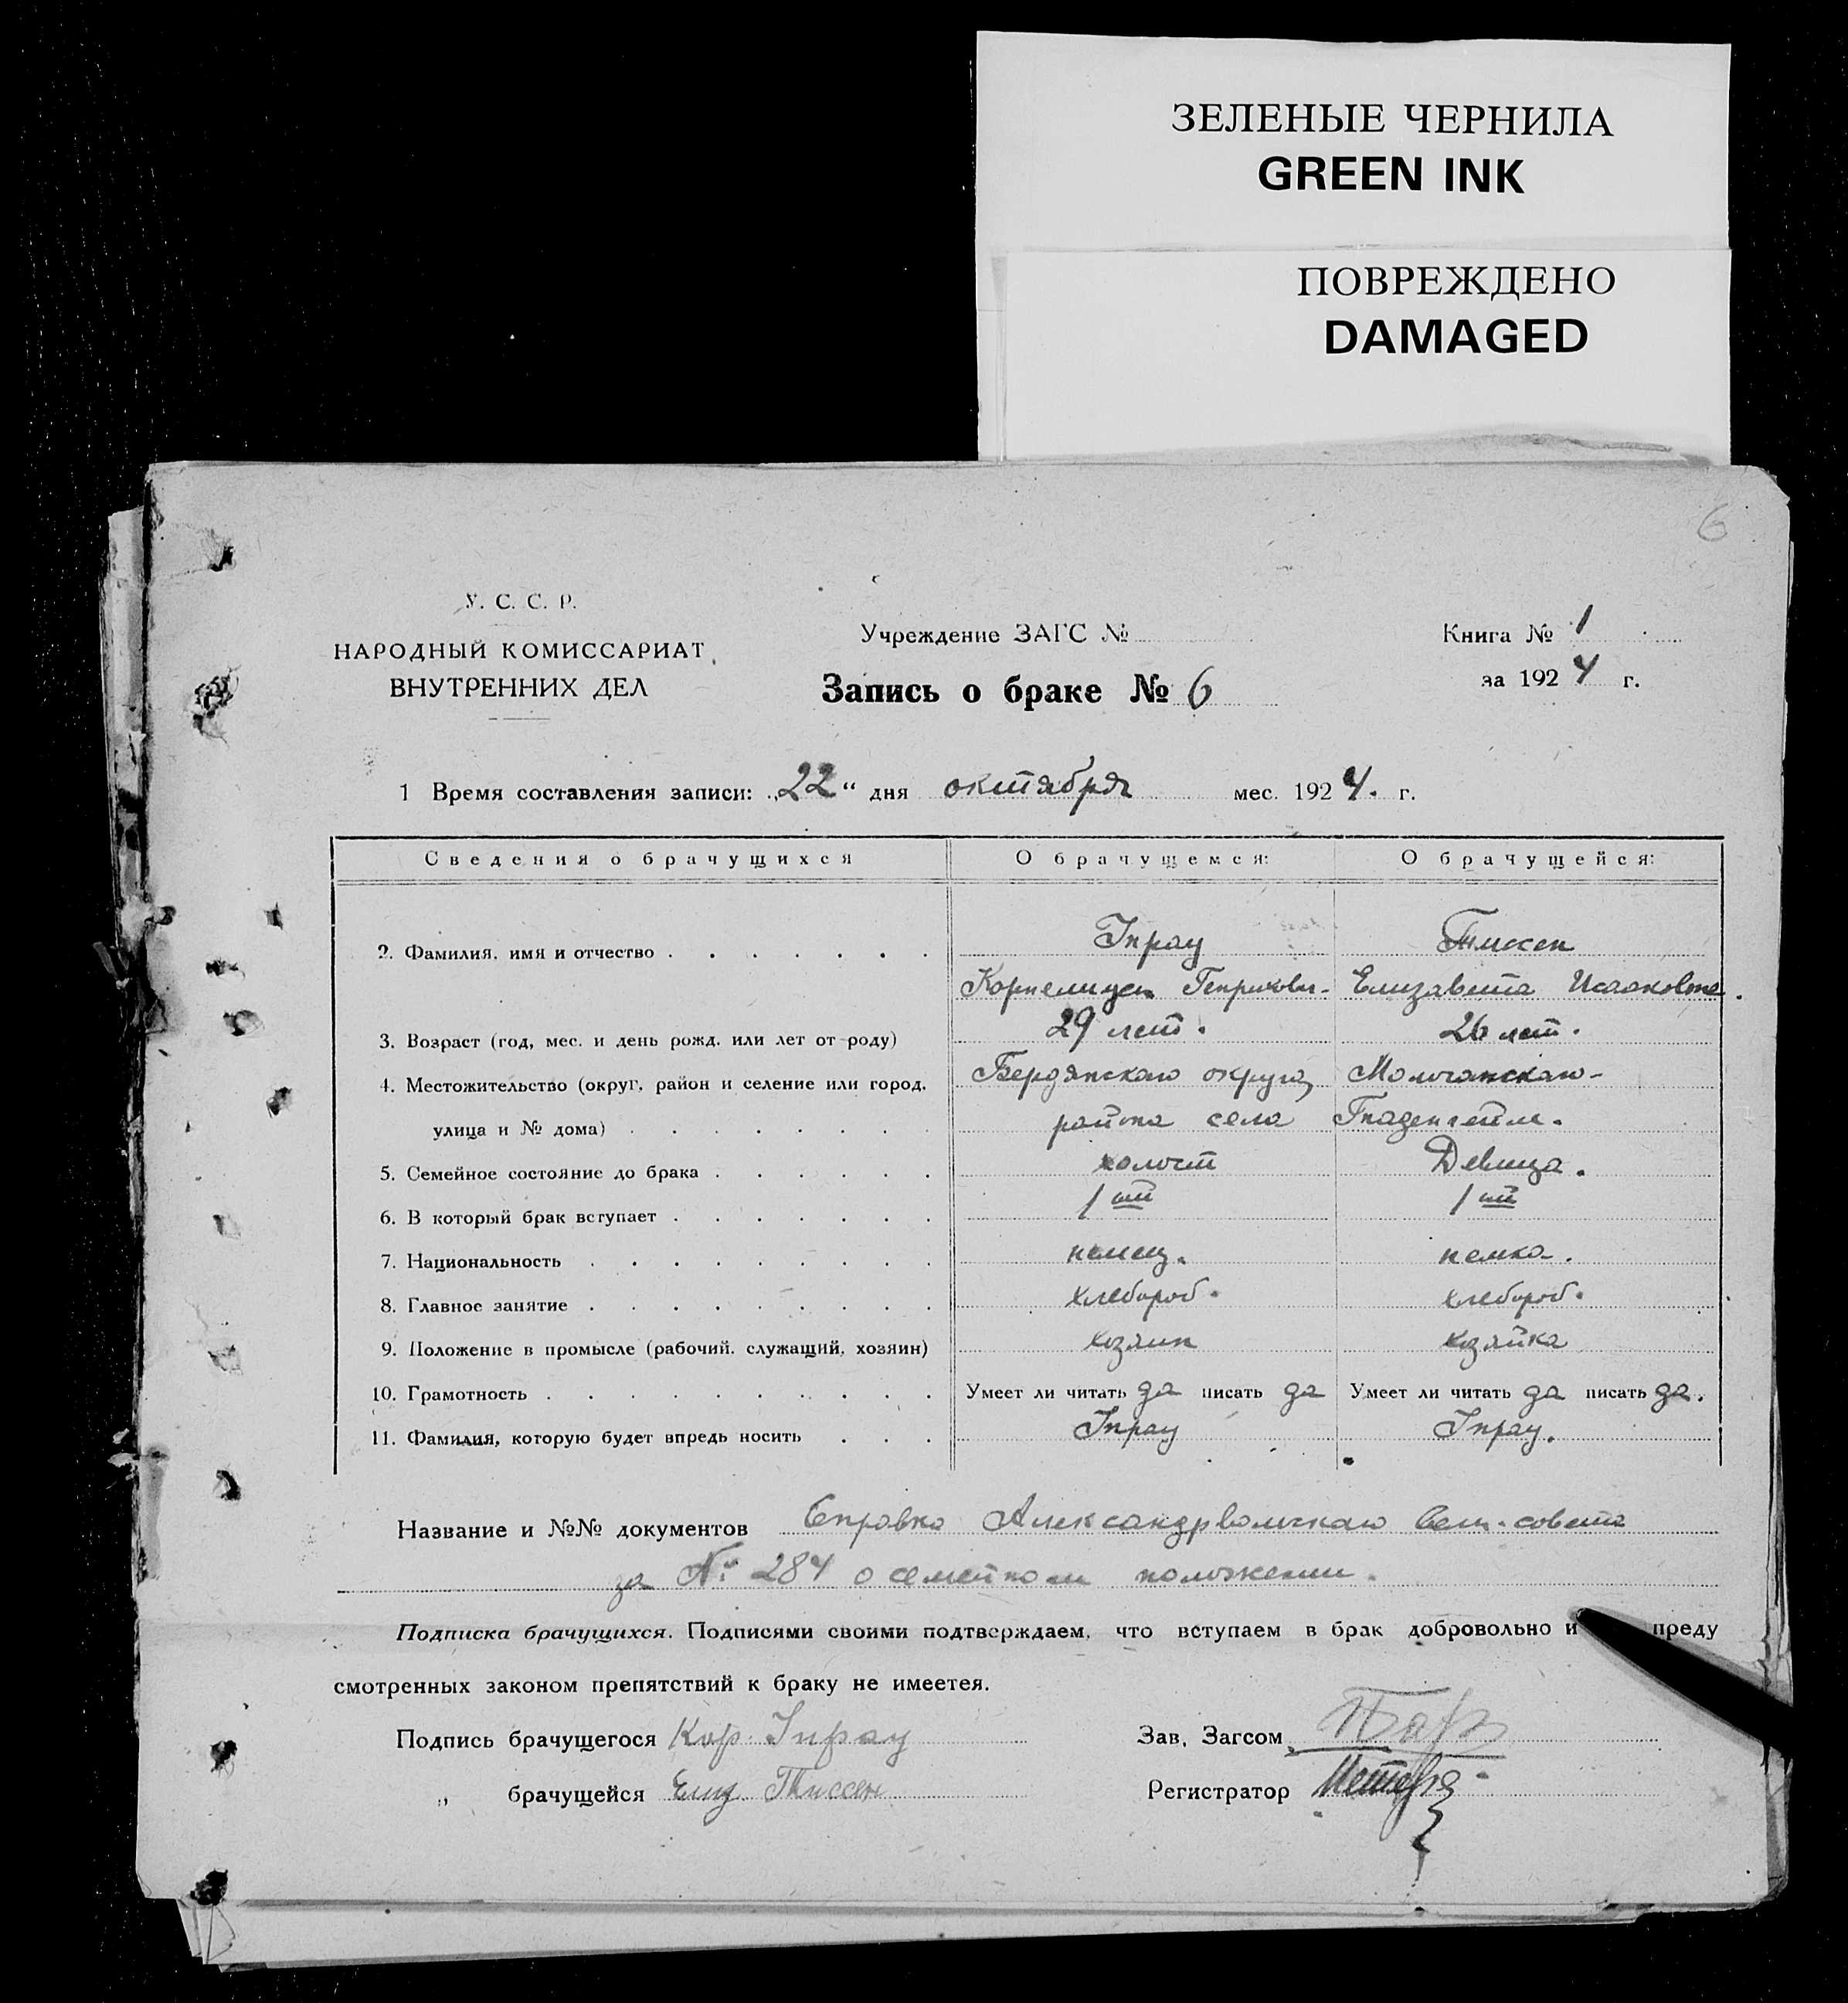 ЗЕЛЕНЫЕ ЧЕРНИЛА
GREEN INK
ПОВРЕЖДЕНО
DAMAGED
6
У. С. С. Р.
НАРОДНЫЙ КОМИССАРИАТ
ВНУТРЕННИХ ДЕЛ
Учреждение ЗАГС №
Запись о браке № 6
Книга № 1
за 1924 г.
1 Время составления записи: „22“ дня октября мес. 1924. г.
Сведения о брачущихся О брачущемся: О брачущейся:
2. Фамилия, имя и отчество Іпрау Тиссен
Корнелиус Генрихов. Елизавета Исааковна.
3. Возраст (год, мес. и день рожд. или лет от роду) 29 лет. 26 лет.
4. Местожительство (округ, район и селение или город, Бердянского округа, Молочанского-
улица и № дома) района села Гнаденгейм.
5. Семейное состояние до брака холост Девица.
6. В который брак вступает 1ый 1ый
7. Национальность немец. немка.
8. Главное занятие хлебороб. хлебороб.
9. Положение в промысле (рабочий, служащий, хозяин) хозяин хозяйка
10. Грамотность Умеет ли читать да писать да Умеет ли читать да писать да.
11. Фамилия, которую будет впредь носить Іпрау Іпрау.
Название и №№ документов Справка Александрвольского сель-совета
за № 284 о семейном положении.
Подписка брачущихся. Подписями своими подтверждаем, что вступаем в брак добровольно и преду
смотренных законом препятствий к браку не имеетея.
Подпись брачущегося Кор. Іпрау Зав. Загсом
„ брачущейся Елиз. Тиссен Регистратор